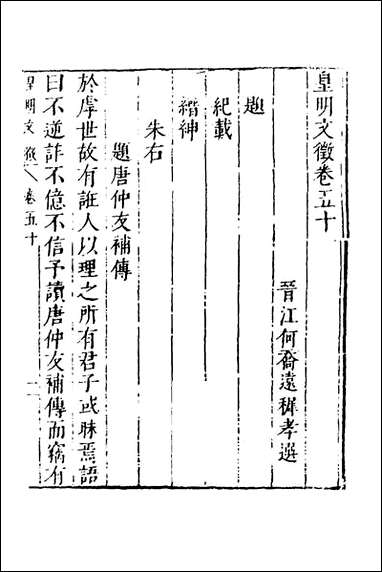 皇明文徵卷五十
晉江何喬遠穉孝選
題
紀載
縉紳
朱右
題唐仲友補傳
於虖世故有誑人以理之所有君子或昧焉語
曰不逆詐不億不信予讀唐仲友補傳而竊有
皇明文徵 卷五十 一